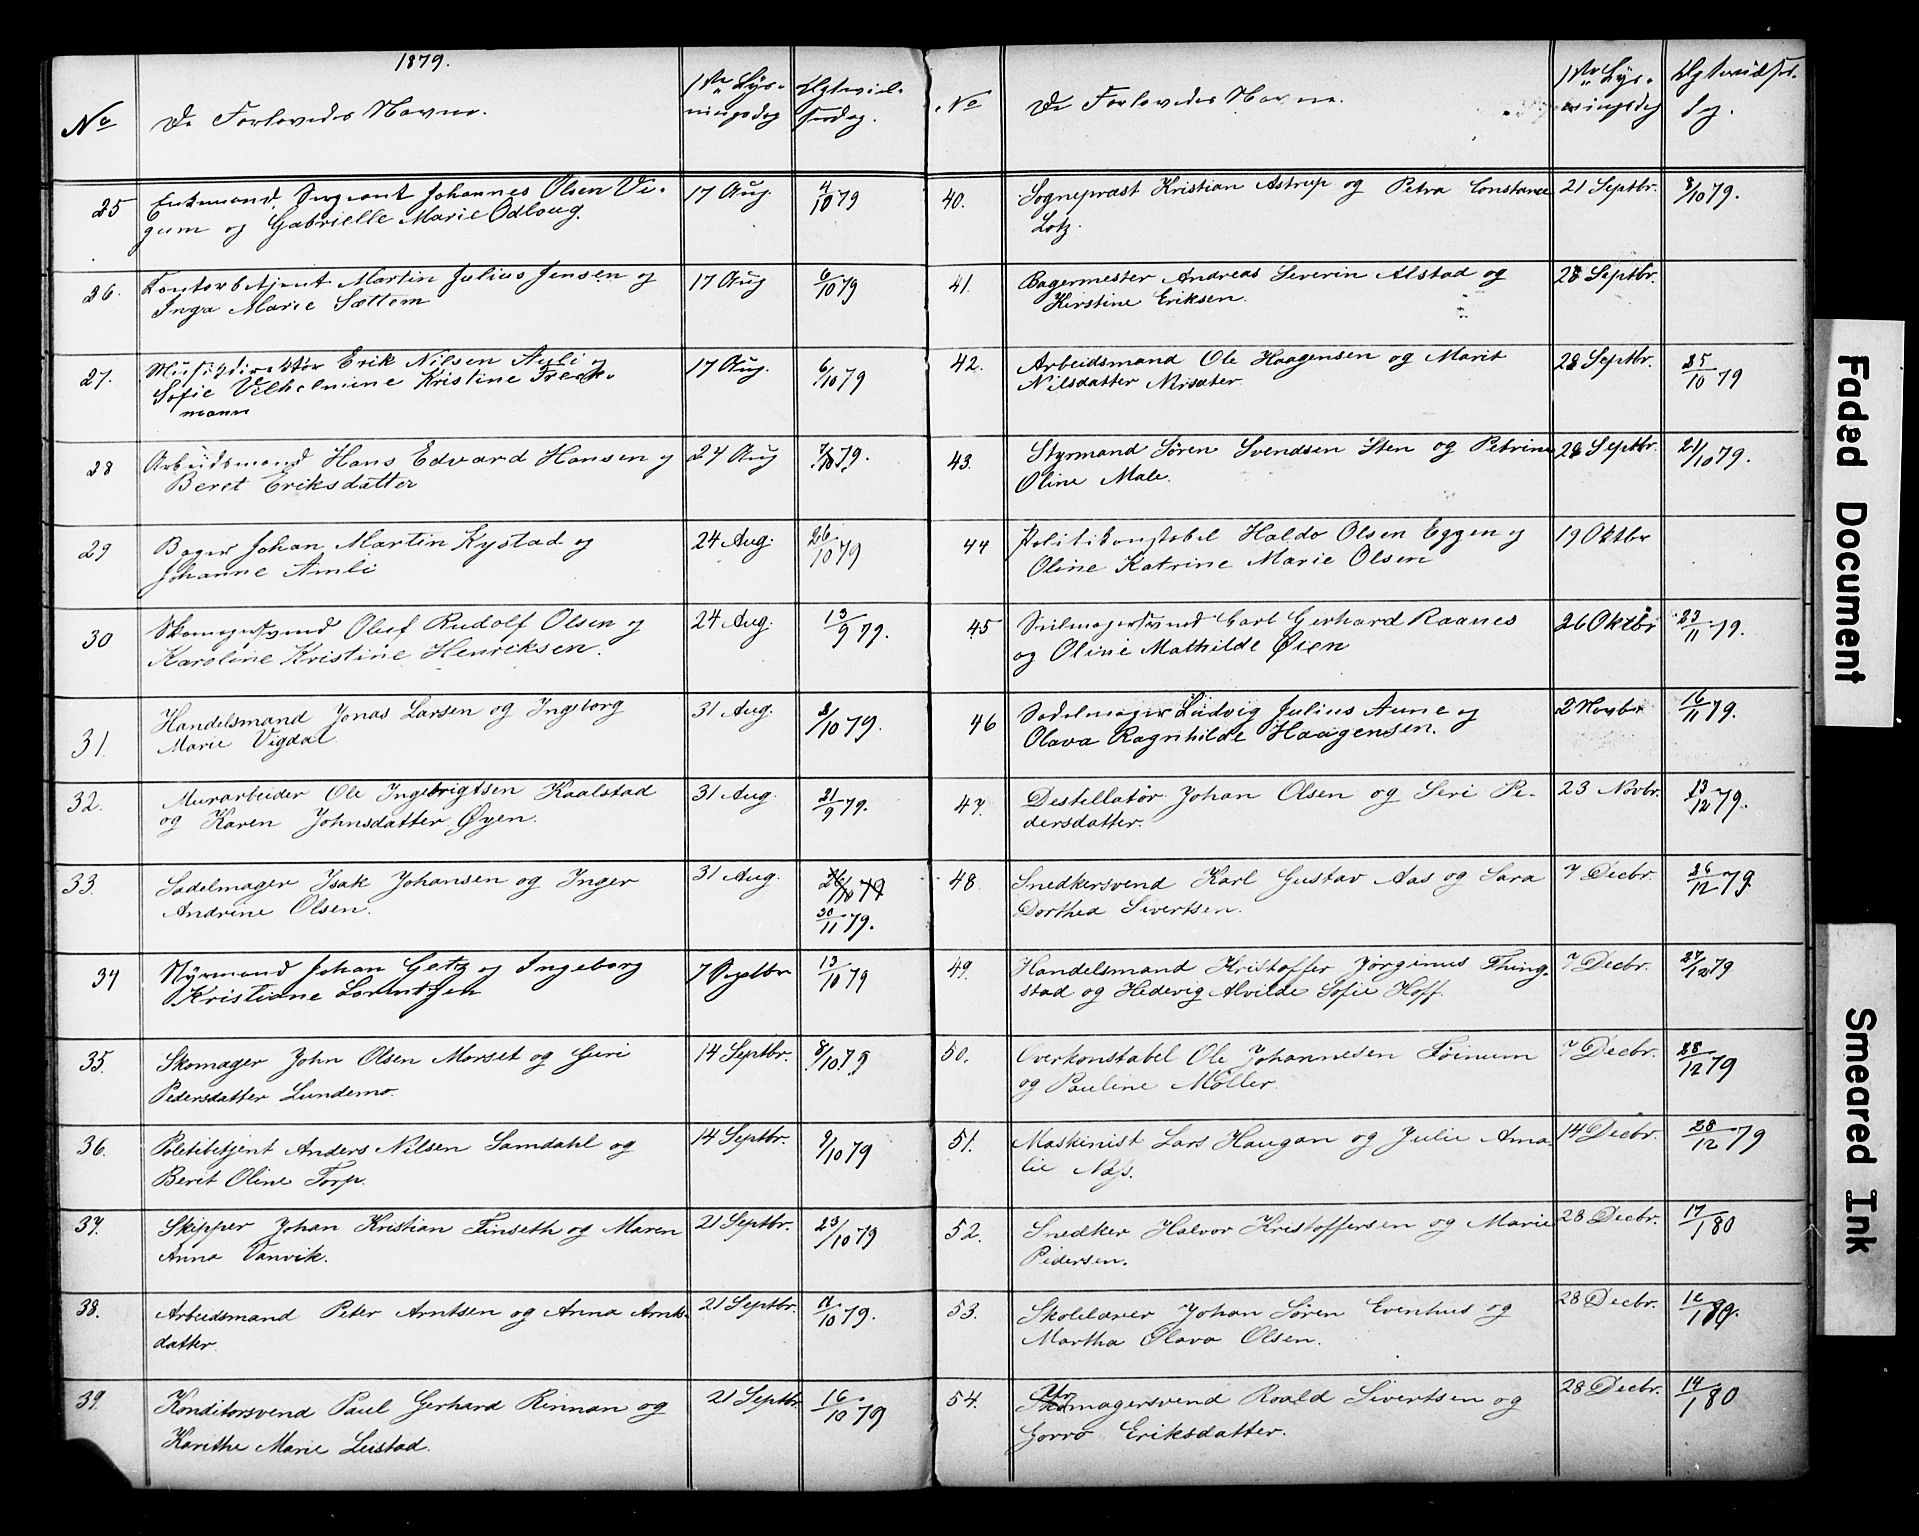 1879.
No De Forlovedes Navne. 1ste Lys- Ægteviel-
ningsdag sesdag.
25 Enkemand, Sergeant Johannes Olsen Vi- 17 Aug. 4/10 79
gum og Gabrielle Marie Odloug.
26. Kontorbetjent Martin Julius Jensen og 17 Aug 6/10 79
Inga Marie Sættem
27. Musikdirektør Erik Nilsen Auli og 17 Aug. 6/10 79
Sofie Vilhelmine Kristine Freck-
mann
28 Arbeidsmand Hans Edvard Hansen og 24 Aug 7/10 79.
Beret Eriksdatter
29 Bager Johan Martin Kystad og 24 Aug. 26/10 79
Johanne Amli
30 Skomagersvend Oluf Rudolf Olsen og 24 Aug. 13/9 79.
Karoline Kristine Henriksen.
31. Handelsmand Jonas Larsen og Ingeborg 31 Aug. 8/10 79.
Marie Vigdal
32. Murarbeider Ole Ingebrigtsen Kaalstad 31 Aug. 21/9 79.
og Karen Johnsdatter Øyen.
33. Sadelmager Isak Johansen og Inger 31 Aug. 26/10 79
Andrine Olsen. 30/11 79.
34 Styrmand Johan Getz og Ingeborg 7 Septbr 13/10 79
Kristiane Lorentzen
35. Skomager John Olsen Morset og Guri 14 Septbr. 8/10 79
Pedersdatter Lundemo.
36. Politibetjent Anders Nilsen Samdahl og 14 Septbr. 9/10 79
Berit Oline Torp.
37. Skipper Johan Kristian Finseth og Maren 21 Septbr. 23/10 79
Anna Vanvik.
38. Arbeidsmand Peter Arntsen og Anna Arnts- 21 Septbr. 11/10 79.
datter.
39. Konditorsvend Paul Gerhard Rinnan og 21 Septbr 16/10 79
Karithe Marie Leistad.
No De Forlovedes Navne. 1ste Lys- Ægtevielses-
ningsdag dag.
40. Sognepræst Kristian Astrup og Petra Constance 21 Septbr. 8/10 79.
Lotz.
41. Bagermester Andreas Severin Alstad og 28 Septbr.
Kirstine Eriksen.
42. Arbeidsmand Ole Haagensen og Marit 28 Septbr. 25/10 79
Nilsdatter Misæter.
43. Styrmand Søren Svendsen Sten og Petrine 28 Septbr. 21/10 79.
Oline Male.
44 Politikonstabel Haldo Olsen Eggen og 19 Oktbr
Oline Katrine Marie Olsen
45 Seilmagersvend Carl Gerhard Raanes 26 Oktbr 23/11 79.
og Oline Mathilde Øien
46 Sadelmager Ludvig Julius Aune og 2 Novbr 16/11 79.
Olava Ragnhilde Haagensen.
47. Destillatør Johan Olsen og Seri Pe- 23 Novbr. 13/12 79.
dersdatter.
48. Snedkersvend Karl Gustav Aas og Sara 7 Decbr. 26/12 79
Dorthea Sivertsen.
49. Handelsmand Kristoffer Jørginus Thing- 7 Decbr. 27/12 79
stad og Hedevig Alvilde Sofie Hoff
50. Overkonstabel Ole Johannesen Føinum 7 Decbr. 28/12 79
og Pauline Møller.
51. Maskinist Lars Haugan og Julie Ama- 14 Decbr. 28/12 79
lie Næss.
52. Snedker Halvor Kristoffersen og Marie 28 Decbr. 17/1 80
Pedersen.
53. Skolelærer Johan Søren Evenhus og 28 Decbr. 12/1 80.
Martha Olava Olsen.
54. Skomagersvend Roald Sivertsen og 28 Decbr. 14/1 80
Gorro Eriksdatter.
Faded Document
Smeared Ink